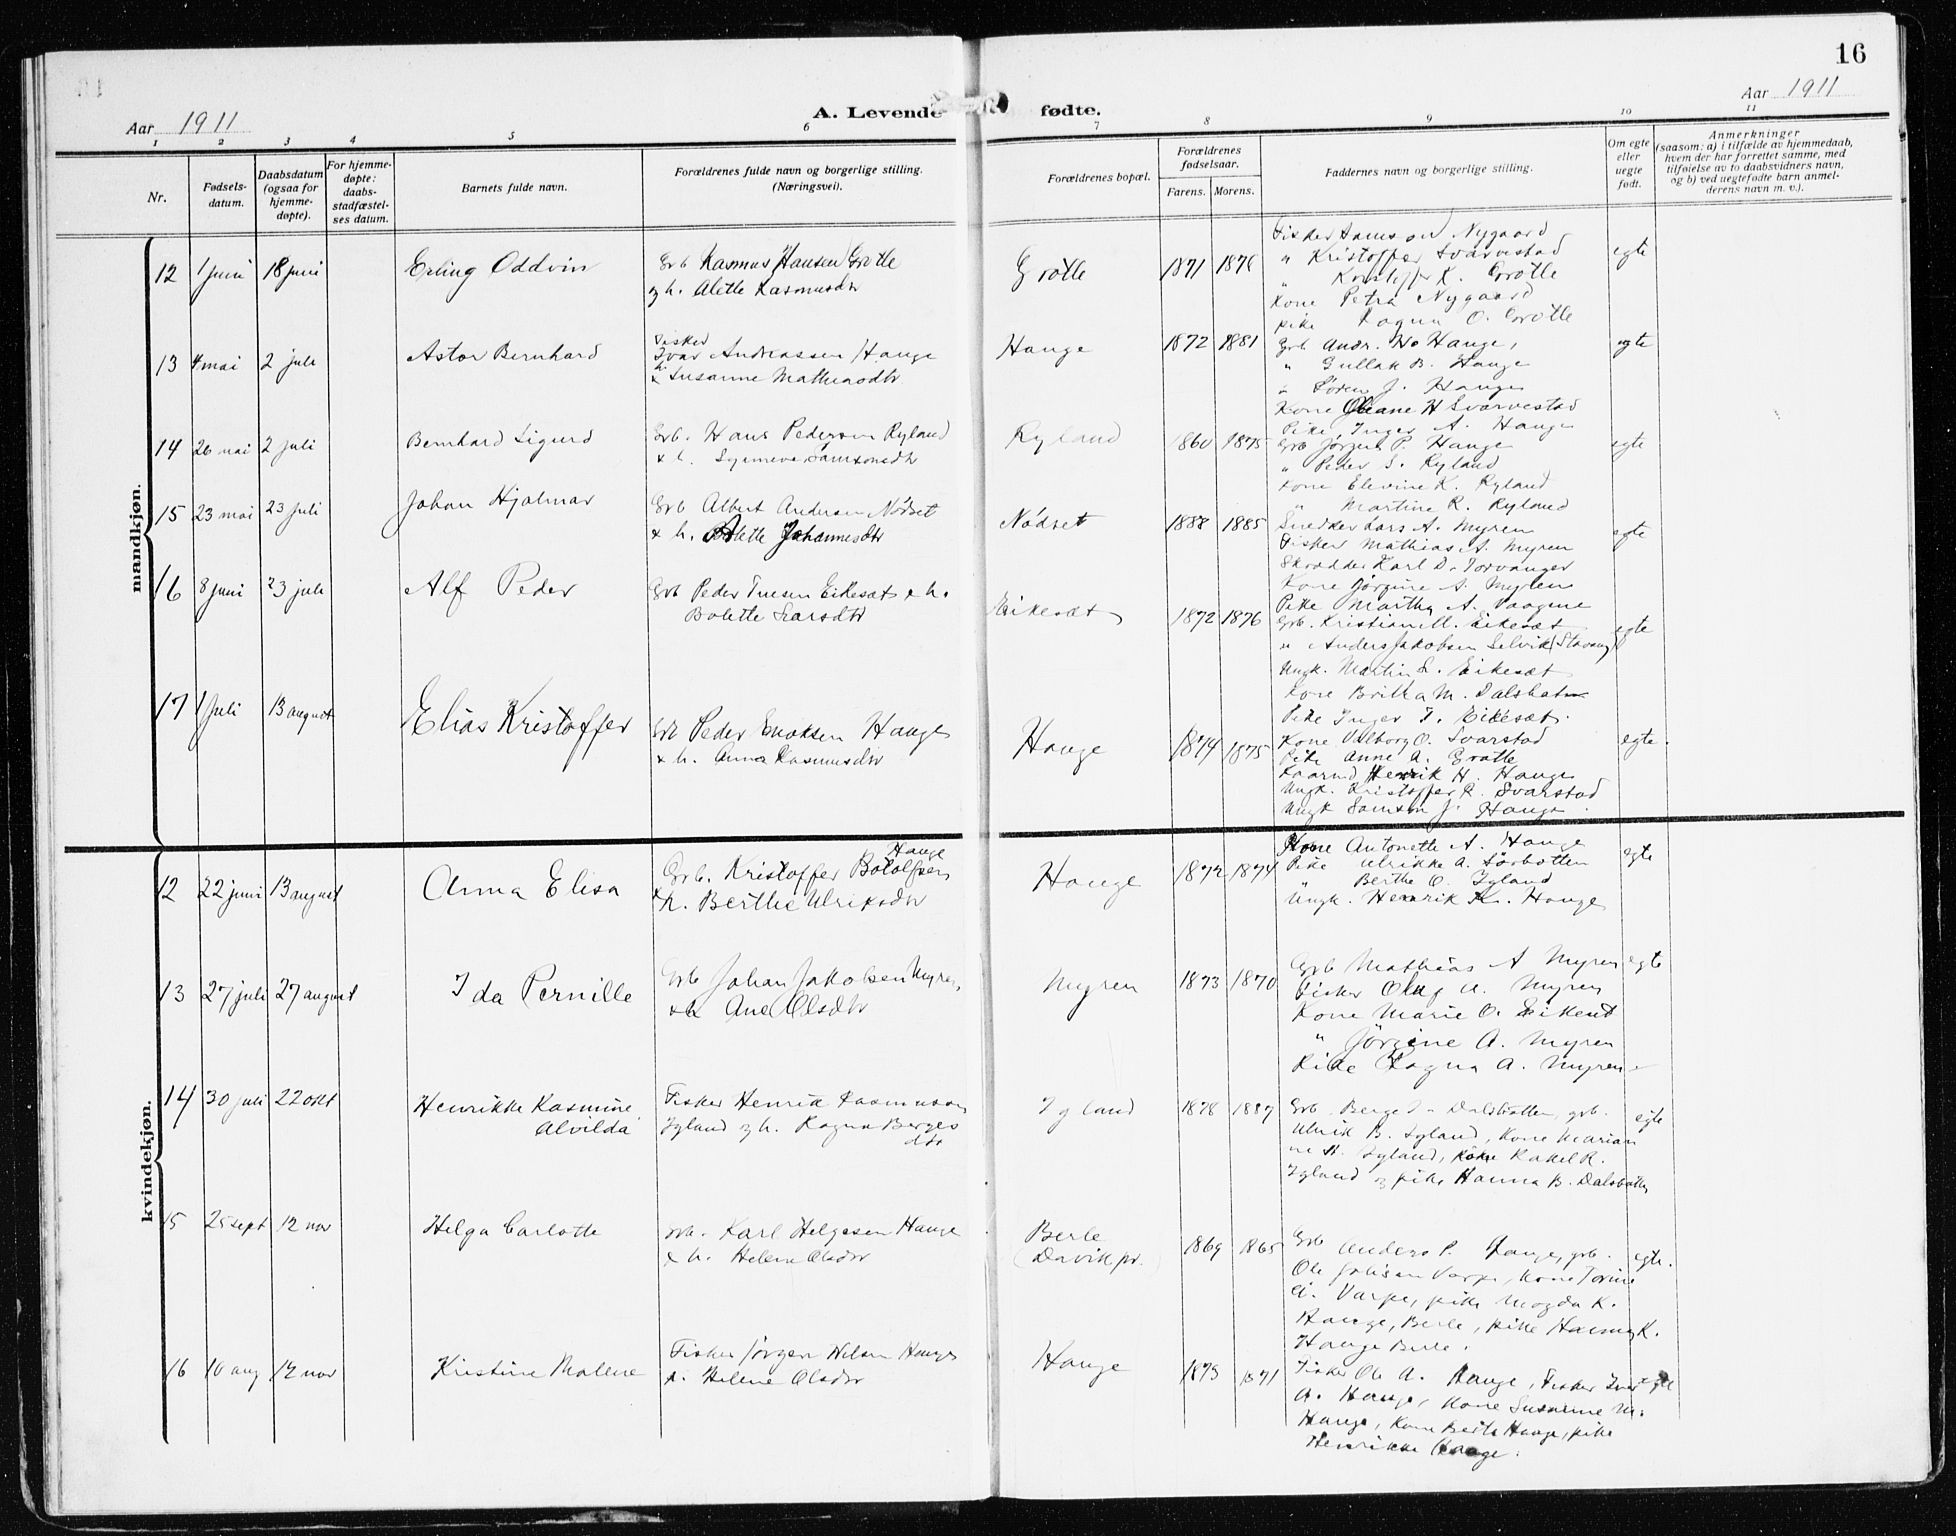 16
Aar 1911
A. Levende fødte.
Aar 1911
1 2 3 4 5 6 7 8 9 10 11
Nr.
Fødsels-
datum.
Daabsdatum
(ogsaa for
hjemme-
døpte).
For hjemme-
døpte:
daabs-
stadfæstel-
ses datum.
Barnets fulde navn.
Forældrenes fulde navn og borgerlige stilling.
(Næringsvei).
Forældrenes bopæl.
Forældrenes
fødselsaar.
Farens. Morens.
Faddernes navn og borgerlige stilling.
Om egte
eller
uegte
født.
Anmerkninger
(saasom: a) i tilfælde av hjemmedaab,
hvem der har forrettet samme, med
tilføielse av to daabsvidners navn,
og b) ved uegtefødte barn anmel-
derens navn m. v.).
mandkjøn.
12 1 juni 18 juni Erling Oddvin
Grb Rasmus Hansen Grotle
og h. Alette Rasmusdtr
Grotle 1871 1876
Fisker Samson Nygaard
" Kristoffer Svarvestad
" Kristoffer K. Grotle
Kone Petra Nygaard
pike Ragna O. Grotle
egte
13 4 mai 2 juli Astor Bernhard
Fisker
Ivar Andreassen Hauge
& h. Susanne Mathiasdtr
Hauge 1872 1881
Grb Andr. H. Hauge,
" Gullak B. Hauge
" Søren J. Hauge
Kone Oleane H Svarvestad
Pike Inger A. Hauge
egte
14 26 mai 2 juli Bernhard Sigurd
Grb. Hans Pedersen Ryland
& h. Synneva Samsonsdtr
Ryland 1860 1875
Grb Jørgen P. Hauge
" Peder S. Ryland
Kone Elevine K. Ryland
" Martine R. Ryland
egte
15 23 mai 23 juli Johan Hjalmar
Grb Albert Andersen Nødset
& h. Alette Johannesdtr
Nødset 1888 1885
Snedker Lars A. Myren
Fisker Mathias A. Myren
Skrædder Karl D. Torvanger
Kone Jørgine A. Myren
Pike Martha A. Vaagene
egte
16 8 juni 23 juli Alf Peder
Grb Peder Tuesen Eikesæt & h.
Bolette Larsdtr
Eikesæt 1872 1876
Grb. Kristian M. Eikesæt
" Anders Jakobsen Selvik (Stavang)
Ungk. Martin L. Eikesæt
Kone Britha M. Dalsbøtn
Pike Inger T. Eikesæt.
egte
17 1 juli 13 august Elias Kristoffer
Grb Peder Enoksen Hauge
& h. Anna Rasmusdtr
Hauge 1874 1875
Kone Valborg O. Svarstad
Pike Anne A. Grotle
Kaarmd Henrik H. Hauge
Ungk. Kristoffer R. Svarstad
Ungk Samson J. Hauge.
egte.
kvindekjøn.
12 22 juni 13 august Anna Elisa
Hauge
Grb. Kristoffer Botolfsen
& h. Berthe Ulriksdtr
Hauge 1872 1874
Kone Antonette A. Hauge
Pike Ulrikke A. Sørbotten
Berthe O. Igland
Ungk. Henrik K. Hauge
egte
13 27 juli 27 august Ida Pernille
Grb Johan Jakobsen Myren,
& h Ane Olsdtr
Myren 1873 1870
Grb Mathias A Myren
Fisker Oluf A. Myren
Kone Marie O. Eikeset
" Jørgine A. Myren
Pike Ragna A. Myren
egte
14 30 juli 22 okt Henrikke Rasmine
Alvilda
Fisker Henrik Rasmussen
Igland og h. Ragna Berges
dtr
Igland 1878 1887
Grb. Berge I. Dalsbøtten, grb.
Ulrik B. Igland, Kone Marian
ne A. Igland, pike Rakel R.
Igland og pike Hanna B. Dalsbøtten
egte
15 25 sept 12 nov Helga Carlotte
grb. Karl Helgesen Hauge
& h. Helene Olsdtr
Berle
(Davik pr.)
1869 1865
Grb Anders P. Hauge, grb.
Ole Johisen Varpe, Kone Torine
A. Varpe, pike Magda K.
Hauge, Berle, pike Hanna K.
Hauge Berle.
egte.
16 10 aug 12 nov Kristine Malene
Fisker Jørgen Nilsen Hauge
& h. Helene Olsdtr
Hauge 1873 1871
Fisker Ole A. Hauge, Fisker Ivar
A. Hauge, Kone Susanne M.
Hauge, Kone Berte Hauge, pike
Henrikke Hauge.